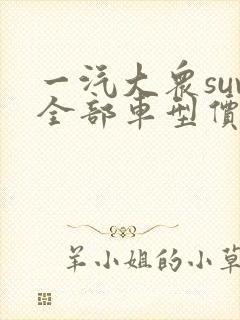 一汽大眾suv
全部車型價
羊小姐的小草